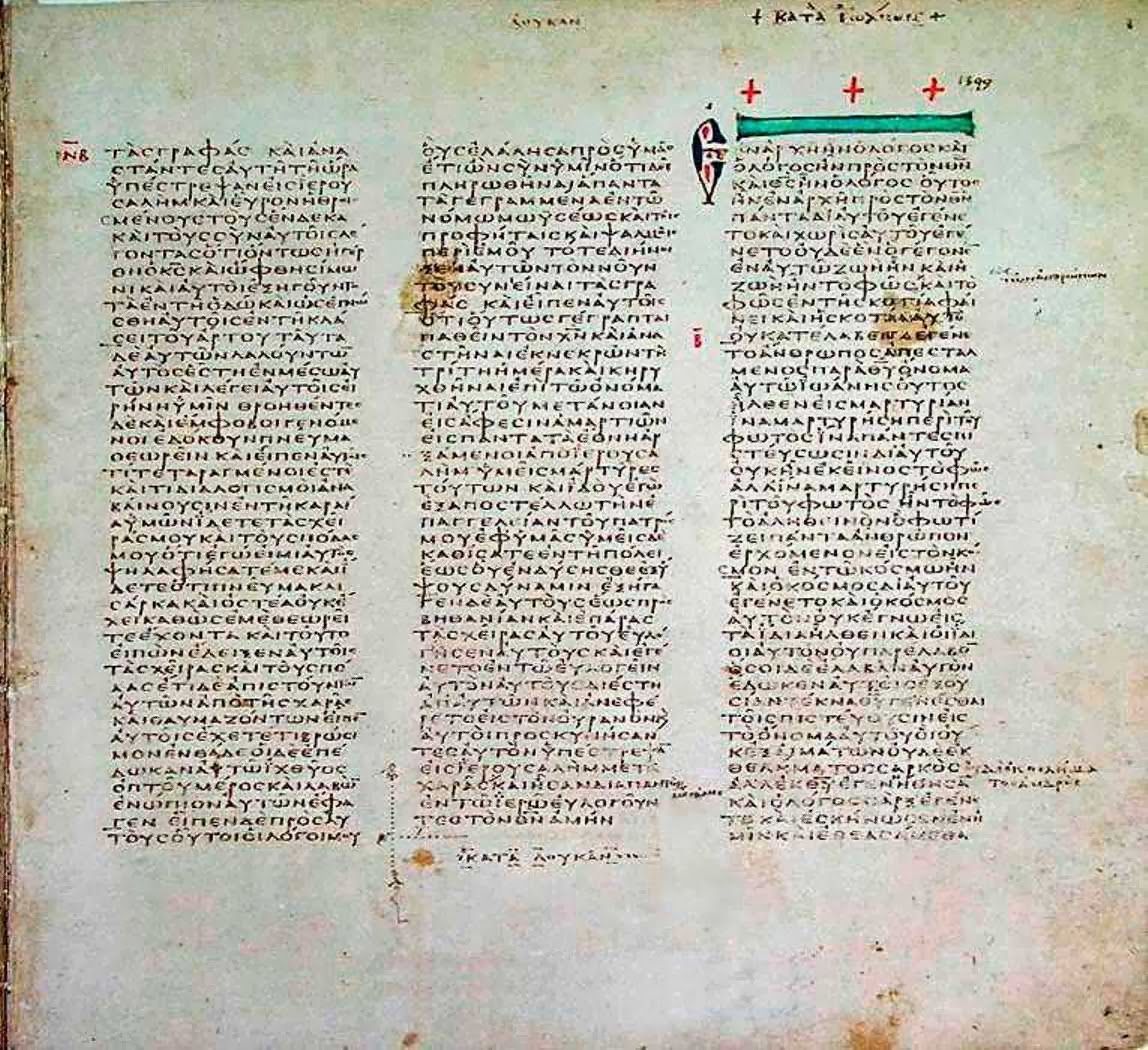 ΛΟΥΚΑΝ
+ ΚΑΤΑ ΙΩΑΝΝΗΝ +
1349
Ν̅Β̅
ΤΑϹΓΡΑΦΑϹ ΚΑΙΑΝΑ
ϹΤΑΝΤΕϹΑΥΤΗΤΗΩΡΑ
ΥΠΕϹΤΡΕΨΑΝΕΙϹΙΕΡΟΥ
ϹΑΛΗΜΚΑΙΕΥΡΟΝΗΘΡΟΙ
ϹΜΕΝΟΥϹΤΟΥϹΕΝΔΕΚΑ
ΚΑΙΤΟΥϹϹΥΝΑΥΤΟΙϹΛΕ
ΓΟΝΤΑϹΟΤΙΟΝΤΩϹΗΓΕΡ
ΘΗΟΚ̅Ϲ̅ΚΑΙΩΦΘΗϹΙΜΩ
ΝΙΚΑΙΑΥΤΟΙΕΞΗΓΟΥΝΤΟ
ΤΑΕΝΤΗΟΔΩΚΑΙΩϹΕΓΝΩ
ϹΘΗΑΥΤΟΙϹΕΝΤΗΚΛΑ
ϹΕΙΤΟΥΑΡΤΟΥ ΤΑΥΤΑ
ΔΕΑΥΤΩΝΛΑΛΟΥΝΤΩ̅
ΑΥΤΟϹΕϹΤΗΕΝΜΕϹΩΑΥ
ΤΩΝΚΑΙΛΕΓΕΙΑΥΤΟΙϹΕΙ
ΡΗΝΗΥΜΙΝ ΘΡΟΗΘΕΝΤΕϹ
ΔΕΚΑΙΕΜΦΟΒΟΙΓΕΝΟΜΕ
ΝΟΙΕΔΟΚΟΥΝΠΝΕΥΜΑ
ΘΕΩΡΕΙΝ ΚΑΙΕΙΠΕΝΑΥΤΟΙϹ
ΤΙΤΕΤΑΡΑΓΜΕΝΟΙΕϹΤΕ
ΚΑΙΤΙΔΙΑΛΟΓΙϹΜΟΙΑΝΑ
ΒΑΙΝΟΥϹΙΝΕΝΤΗΚΑΡΔΙ
ΑΥΜΩΝΙΔΕΤΕΤΑϹΧΕΙ
ΡΑϹΜΟΥΚΑΙΤΟΥϹΠΟΔΑϹ
ΜΟΥΟΤΙΕΓΩΕΙΜΙΑΥΤΟϹ
ΨΗΛΑΦΗϹΑΤΕΜΕΚΑΙΙ
ΔΕΤΕΟΤΙΠΝΕΥΜΑΚΑΙ
ϹΑΡΚΑΚΑΙΟϹΤΕΑΟΥΚΕ
ΧΕΙΚΑΘΩϹΕΜΕΘΕΩΡΕΙ
ΤΕΕΧΟΝΤΑ ΚΑΙΤΟΥΤΟ
ΕΙΠΩΝΕΔΕΙΞΕΝΑΥΤΟΙϹ
ΤΑϹΧΕΙΡΑϹΚΑΙΤΟΥϹΠΟ
ΔΑϹΕΤΙΔΕΑΠΙϹΤΟΥΝΤΩ̅
ΑΥΤΩΝΑΠΟΤΗϹΧΑΡΑϹ
ΚΑΙΘΑΥΜΑΖΟΝΤΩΝΕΙΠΕ̅
ΑΥΤΟΙϹΕΧΕΤΕΤΙΒΡΩϹΙ
ΜΟΝΕΝΘΑΔΕΟΙΔΕΕΠΕ
ΔΩΚΑΝΑΥΤΩΙΧΘΥΟϹ
ΟΠΤΟΥΜΕΡΟϹΚΑΙΛΑΒΩ̅
ΕΝΩΠΙΟΝΑΥΤΩΝΕΦΑ
ΓΕΝ ΕΙΠΕΝΔΕΠΡΟϹΑΥ
ΤΟΥϹΟΥΤΟΙΟΙΛΟΓΟΙΜΟΥ
ΟΥϹΕΛΑΛΗϹΑΠΡΟϹΥΜΑϹ
ΕΤΙΩΝϹΥΝΥΜΙΝΟΤΙΔΕΙ
ΠΛΗΡΩΘΗΝΑΙΑΠΑΝΤΑ
ΤΑΓΕΓΡΑΜΜΕΝΑΕΝΤΩ
ΝΟΜΩΜΩΥϹΕΩϹΚΑΙΤΟΙϹ
ΠΡΟΦΗΤΑΙϹΚΑΙΨΑΛΜΟΙϹ
ΠΕΡΙΕΜΟΥ ΤΟΤΕΔΙΗΝΟΙ
ΞΕΝΑΥΤΩΝΤΟΝΝΟΥΝ
ΤΟΥϹΥΝΕΙΝΑΙΤΑϹΓΡΑ
ΦΑϹ ΚΑΙΕΙΠΕΝΑΥΤΟΙϹ
ΟΤΙΟΥΤΩϹΓΕΓΡΑΠΤΑΙ
ΠΑΘΕΙΝΤΟΝΧ̅Ν̅ΚΑΙΑΝΑ
ϹΤΗΝΑΙΕΚΝΕΚΡΩΝΤΗ
ΤΡΙΤΗΗΜΕΡΑΚΑΙΚΗΡΥ
ΧΘΗΝΑΙΕΠΙΤΩΟΝΟΜΑ
ΤΙΑΥΤΟΥΜΕΤΑΝΟΙΑΝ
ΕΙϹΑΦΕϹΙΝΑΜΑΡΤΙΩΝ
ΕΙϹΠΑΝΤΑΤΑΕΘΝΗΑΡ
ΞΑΜΕΝΟΙΑΠΟΙΕΡΟΥϹΑ
ΛΗΜ ΥΜΕΙϹΜΑΡΤΥΡΕϹ
ΤΟΥΤΩΝ ΚΑΙΙΔΟΥΕΓΩ
ΕΞΑΠΟϹΤΕΛΛΩΤΗΝΕ
ΠΑΓΓΕΛΕΙΑΝΤΟΥΠΑΤΡΟϹ
ΜΟΥΕΦΥΜΑϹΥΜΕΙϹΔΕ
ΚΑΘΙϹΑΤΕΕΝΤΗΠΟΛΕΙ
ΕΩϹΟΥΕΝΔΥϹΗϹΘΕΕΞΥ
ΨΟΥϹΔΥΝΑΜΙΝ ΕΞΗΓΑ
ΓΕΝΔΕΑΥΤΟΥϹΕΩϹΠΡΟϹ
ΒΗΘΑΝΙΑΝΚΑΙΕΠΑΡΑϹ
ΤΑϹΧΕΙΡΑϹΑΥΤΟΥΕΥΛΟ
ΓΗϹΕΝΑΥΤΟΥϹΚΑΙΕΓΕ
ΝΕΤΟΕΝΤΩΕΥΛΟΓΕΙΝ
ΑΥΤΟΝΑΥΤΟΥϹΔΙΕϹΤΗ
ΑΠΑΥΤΩΝΚΑΙΑΝΕΦΕ
ΡΕΤΟΕΙϹΤΟΝΟΥΡΑΝΟΝΚΑΙ
ΑΥΤΟΙΠΡΟϹΚΥΝΗϹΑΝ
ΤΕϹΑΥΤΟΝΥΠΕϹΤΡΕΨΑ̅
ΕΙϹΙΕΡΟΥϹΑΛΗΜΜΕΤΑ
ΧΑΡΑϹΚΑΙΗϹΑΝΔΙΑΠΑΝΤΟϹ
ΕΝΤΩΙΕΡΩΕΥΛΟΓΟΥΝ
ΤΕϹΤΟΝΘ̅Ν̅ΑΜΗΝ
ΚΑΤΑ ΛΟΥΚΑΝ
+ + +
ΕΝΑΡΧΗΗΝΟΛΟΓΟϹΚΑΙ
ΟΛΟΓΟϹΗΝΠΡΟϹΤΟΝΘ̅Ν̅
ΚΑΙΘ̅Ϲ̅ΗΝΟΛΟΓΟϹ ΟΥΤΟϹ
ΗΝΕΝΑΡΧΗΠΡΟϹΤΟΝΘ̅Ν̅
ΠΑΝΤΑΔΙΑΥΤΟΥΕΓΕΝΕ
ΤΟΚΑΙΧΩΡΙϹΑΥΤΟΥΕΓΕ
ΝΕΤΟΟΥΔΕΕΝΟΓΕΓΟΝΕ̅
ΕΝΑΥΤΩΖΩΗΗΝ ΚΑΙΗ
ΖΩΗΗΝΤΟΦΩϹ ΚΑΙΤΟ
ΤΩΝΑΝΘΡΩΠΩΝ
ΦΩϹΕΝΤΗϹΚΟΤΙΑΦΑΙ
ΝΕΙΚΑΙΗϹΚΟΤΙΑΑΥΤΟ
Β̅
ΟΥΚΑΤΕΛΑΒΕΝ ΕΓΕΝΕ
ΤΟΑΝΘΡΩΠΟϹΑΠΕϹΤΑΛ
ΜΕΝΟϹΠΑΡΑΘ̅Υ̅ΟΝΟΜΑ
ΑΥΤΩΙΩΑΝΗϹΟΥΤΟϹ
ΗΛΘΕΝΕΙϹΜΑΡΤΥΡΙΑΝ
ΙΝΑΜΑΡΤΥΡΗϹΗΠΕΡΙΤΟΥ
ΦΩΤΟϹΙΝΑΠΑΝΤΕϹΠΙ
ϹΤΕΥϹΩϹΙΝΔΙΑΥΤΟΥ
ΟΥΚΗΝΕΚΕΙΝΟϹΤΟΦΩϹ
ΑΛΛΙΝΑΜΑΡΤΥΡΗϹΗΠΕ
ΡΙΤΟΥΦΩΤΟϹ ΗΝΤΟΦΩϹ
ΤΟΑΛΗΘΕΙΝΟΝΟΦΩΤΙ
ΖΕΙΠΑΝΤΑΑΝΘΡΩΠΟΝ
ΕΡΧΟΜΕΝΟΝΕΙϹΤΟΝΚΟ
ϹΜΟΝ ΕΝΤΩΚΟϹΜΩΗΝ
ΚΑΙΟΚΟϹΜΟϹΔΙΑΥΤΟΥ
ΕΓΕΝΕΤΟΚΑΙΟΚΟϹΜΟϹ
ΑΥΤΟΝΟΥΚΕΓΝΩΕΙϹ
ΤΑΙΔΙΑΗΛΘΕΝΚΑΙΟΙΙΔΙ
ΟΙΑΥΤΟΝΟΥΠΑΡΕΛΑΒΟ̅
ΟϹΟΙΔΕΕΛΑΒΑΝΑΥΤΟΝ
ΕΔΩΚΕΝΑΥΤΟΙϹΕΞΟΥ
ϹΙΑΝΤΕΚΝΑΘ̅Υ̅ΓΕΝΕϹΘΑΙ
ΤΟΙϹΠΙϹΤΕΥΟΥϹΙΝΕΙϹ
ΤΟΟΝΟΜΑΑΥΤΟΥΟΙΟΥ
ΚΕΞΑΙΜΑΤΩΝΟΥΔΕΕΚ
ΘΕΛΗΜΑΤΟϹϹΑΡΚΟϹ
ΑΛΛΕΚΘ̅Υ̅ΕΓΕΝΗΘΗϹΑ̅
ΚΑΙΟΛΟΓΟϹϹΑΡΞΕΓΕΝΕ
ΤΟ ΚΑΙΕϹΚΗΝΩϹΕΝΕΝΗ
ΜΙΝΚΑΙΕΘΕΑϹΑΜΕΘΑ